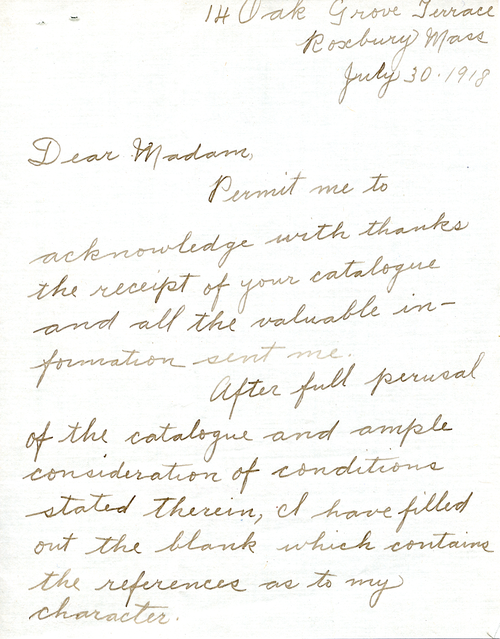 14 Oak Grove Terrace
Roxbury Mass
July 30. 1918
Dear Madam,
Permit me to
acknowledge with thanks
the receipt of your catalogue
and all the valuable in-
formation sent me.
After full perusal
of the catalogue and ample
consideration of conditions
stated therein, I have filled
out the blank which contains
the references as to my
character.